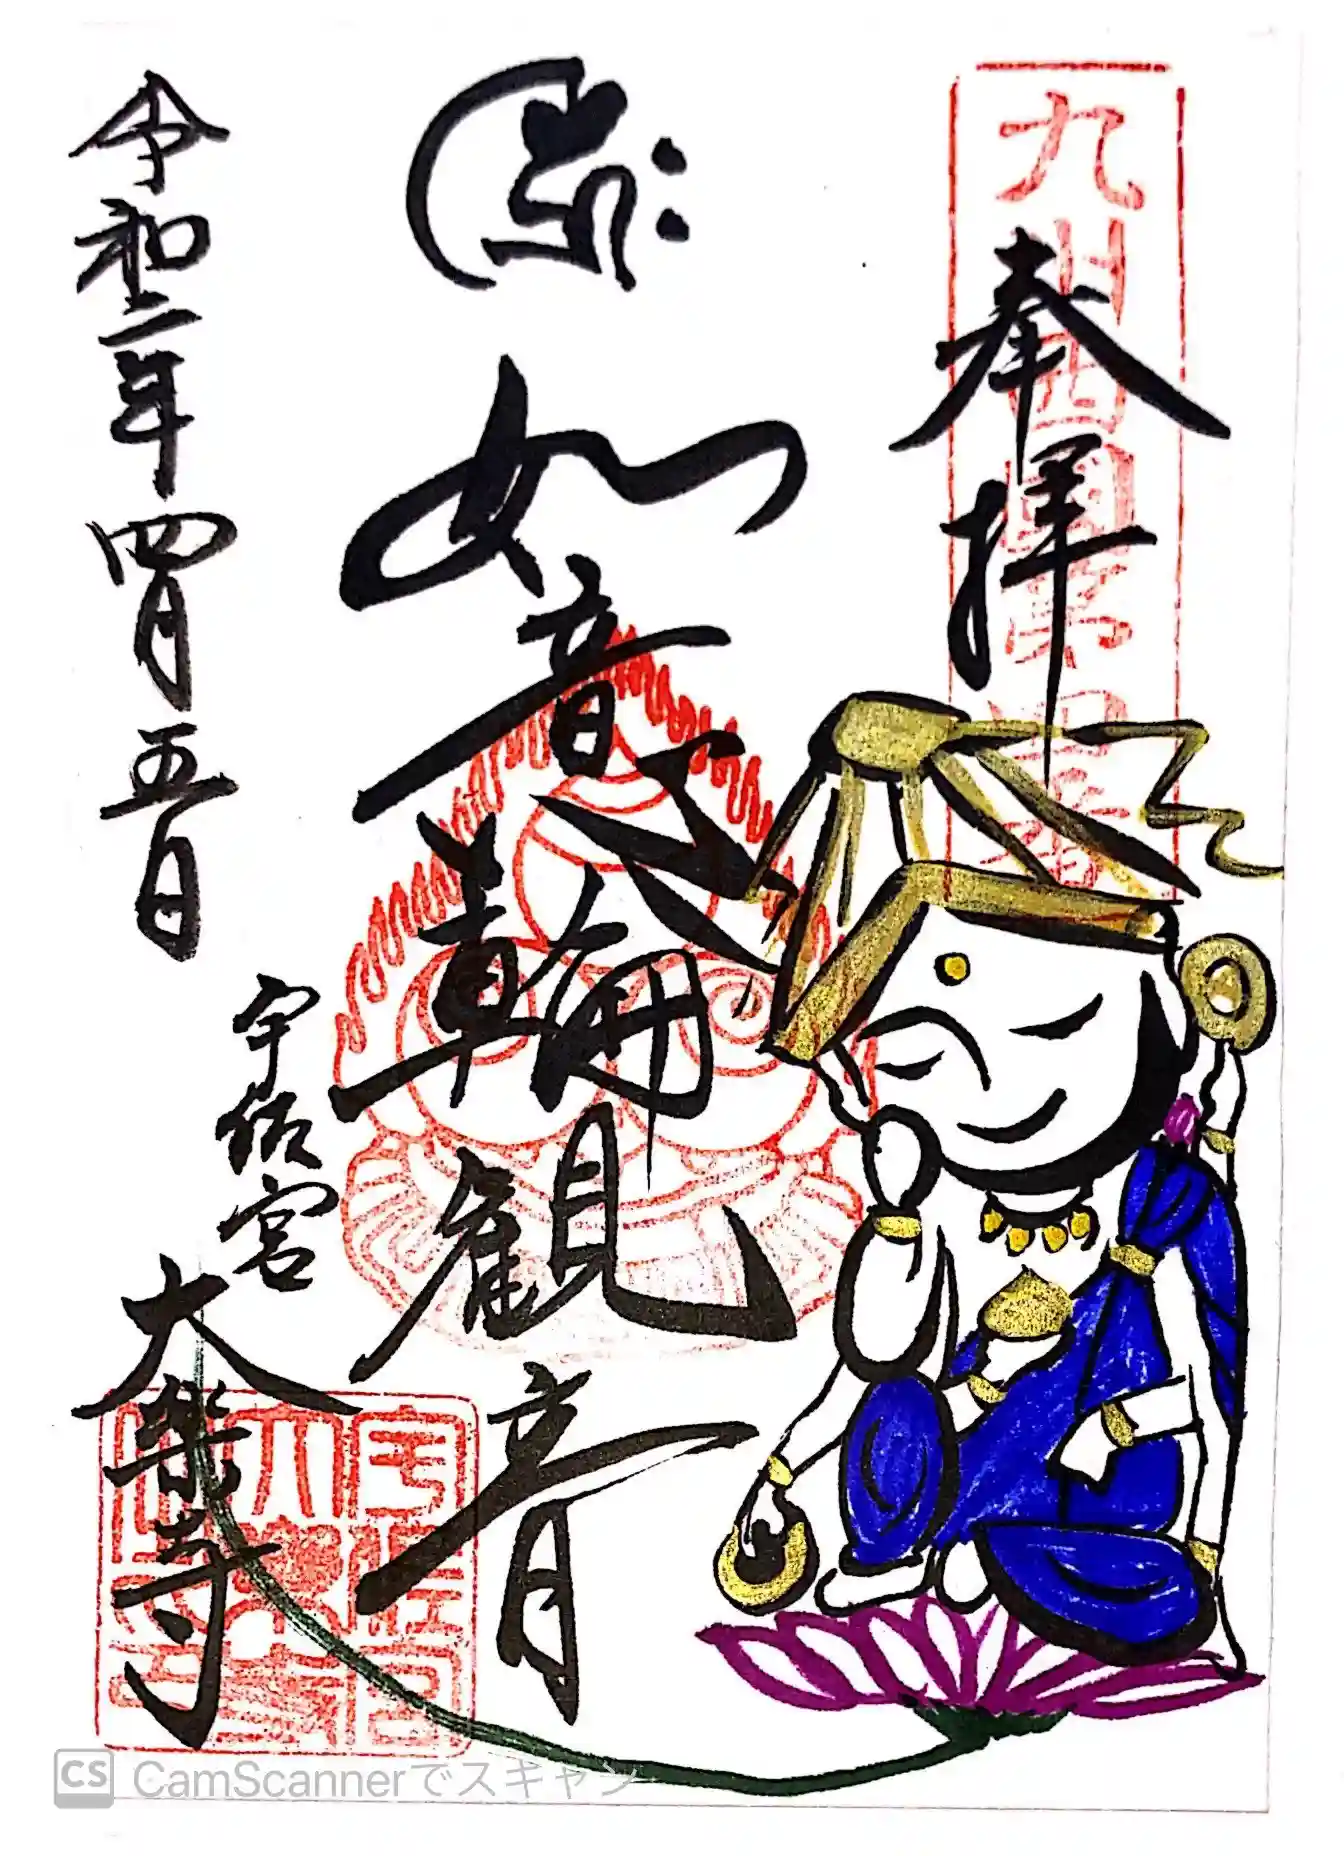 奉拝
如意輪観音
令和二年四月五日
宇佐宮
大楽寺
CamScannerでスキャン